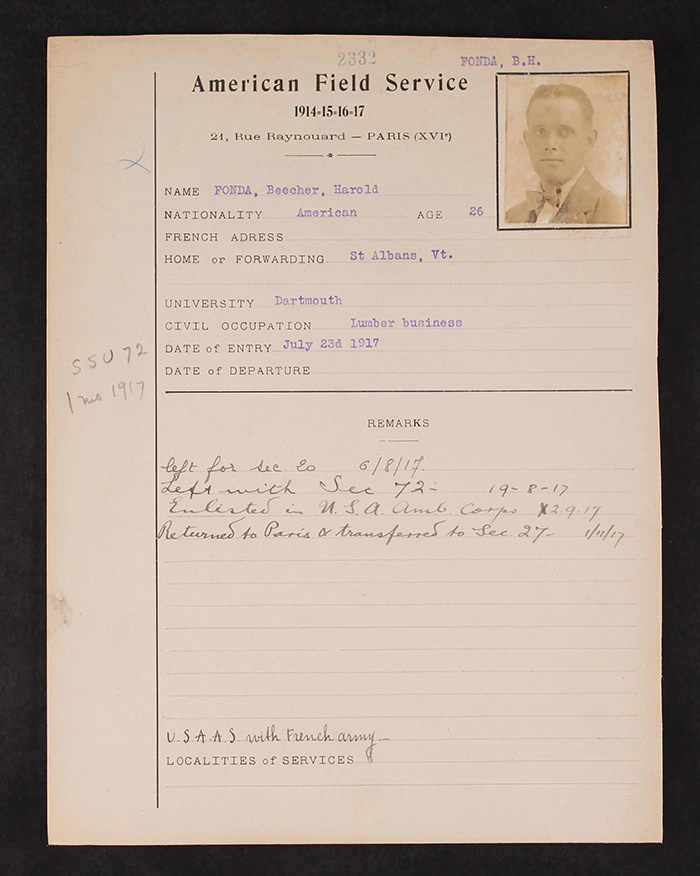 2332
FONDA, B.H.
American Field Service
1914-15-16-17
21, Rue Raynouard — PARIS (XVIe)
NAME FONDA, Beecher, Harold
NATIONALITY American AGE 26
FRENCH ADRESS
HOME or FORWARDING St Albans, Vt.
UNIVERSITY Dartmouth
CIVIL OCCUPATION Lumber business
DATE of ENTRY July 23d 1917
DATE of DEPARTURE
SSU 72
1 mo 1917
REMARKS
left for sec. 20 6/8/17.
Left with Sec 72- 19-8-17
Enlisted in U.S.A. Amb. Corps 2.9.17
Returned to Paris & transferred to Sec. 27- 1/11/17
U.S.A.A.S with French army-
LOCALITIES of SERVICES